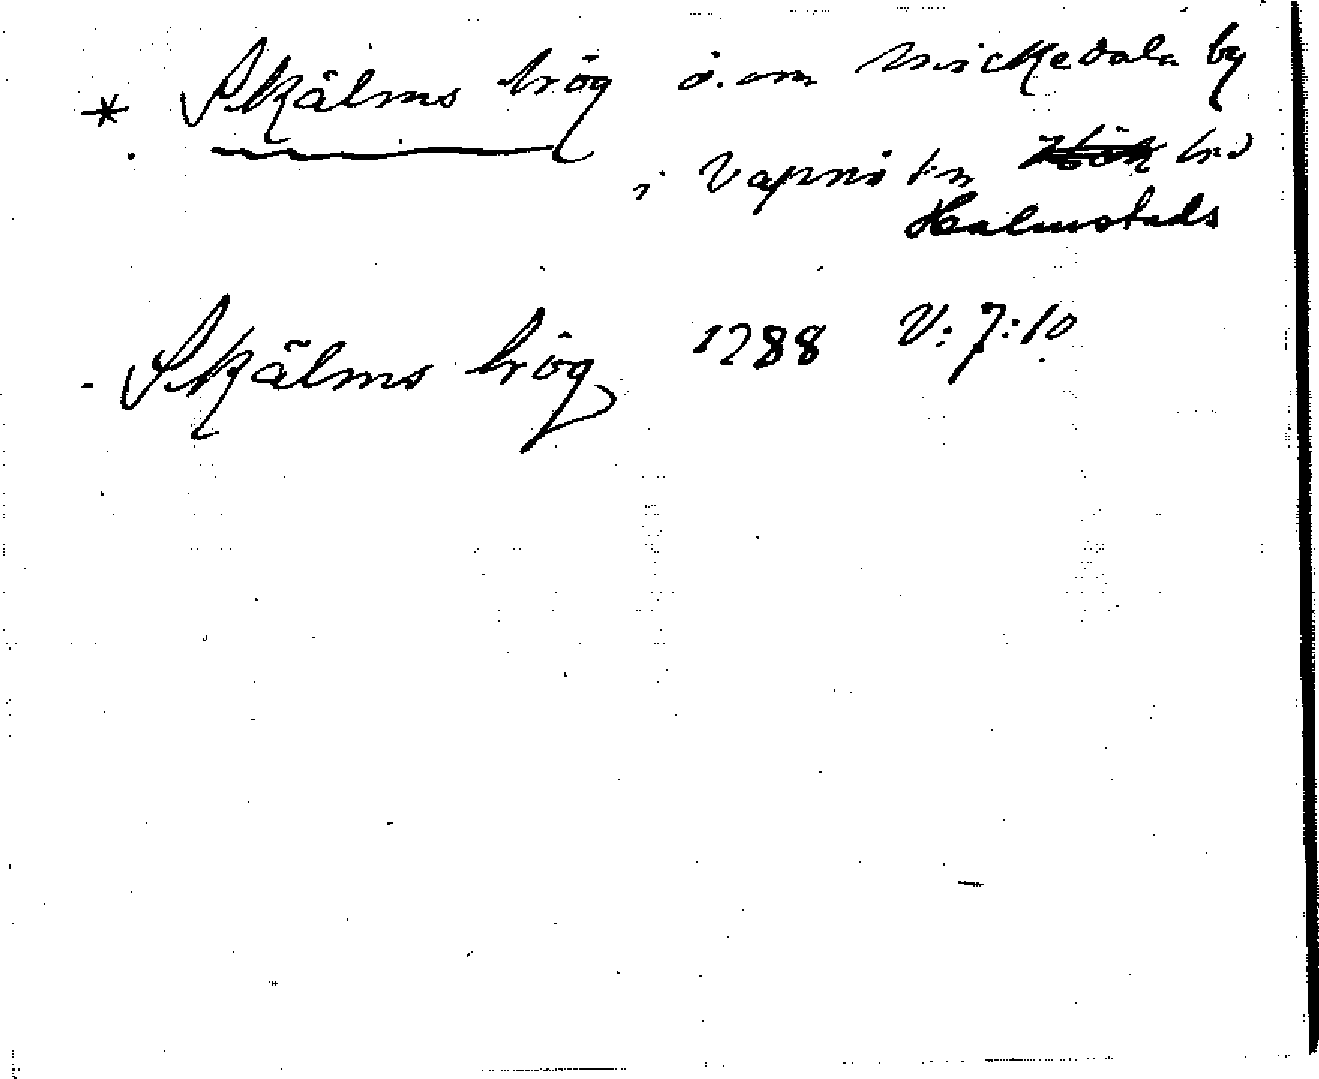 * Skälms hög ö. om Mickedala by
i Vapnö s:n hd
Halmstads
- Skälms hög 1288 V: 7:10